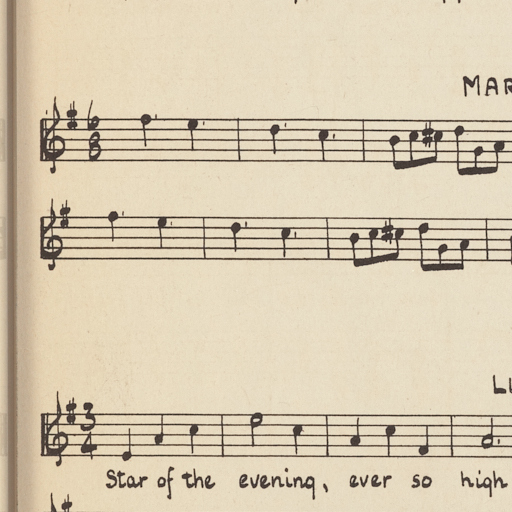 MAR
6
8
LU
3
4
Star of the evening, ever so high